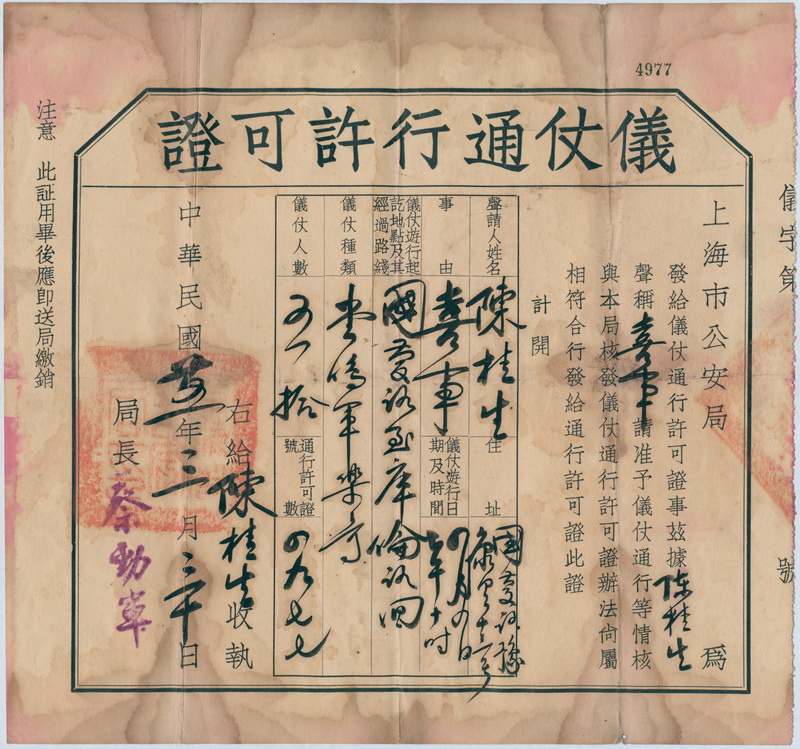 4977
儀仗通行許可證
儀字第　號
上海市公安局　為
發給儀仗通行許可證事茲據陳桂生
聲稱喜事請准予儀仗通行等情核
與本局核發儀仗通行許可證辦法尚屬
相符合行發給通行許可證此證
計開
聲請人姓名 陳桂生 住址 國慶路
事由 喜事 儀仗遊行日期及時間 四月四日上午十時
儀仗遊行起訖地點及其經過路綫 國慶路至庫倫路回
儀仗種類 軍樂亭
儀仗人數 拾 通行許可證號數 四九七七
右給陳桂生收執
中華民國 年三月三十日
局長 蔡勁軍
注意 此証用畢後應即送局繳銷